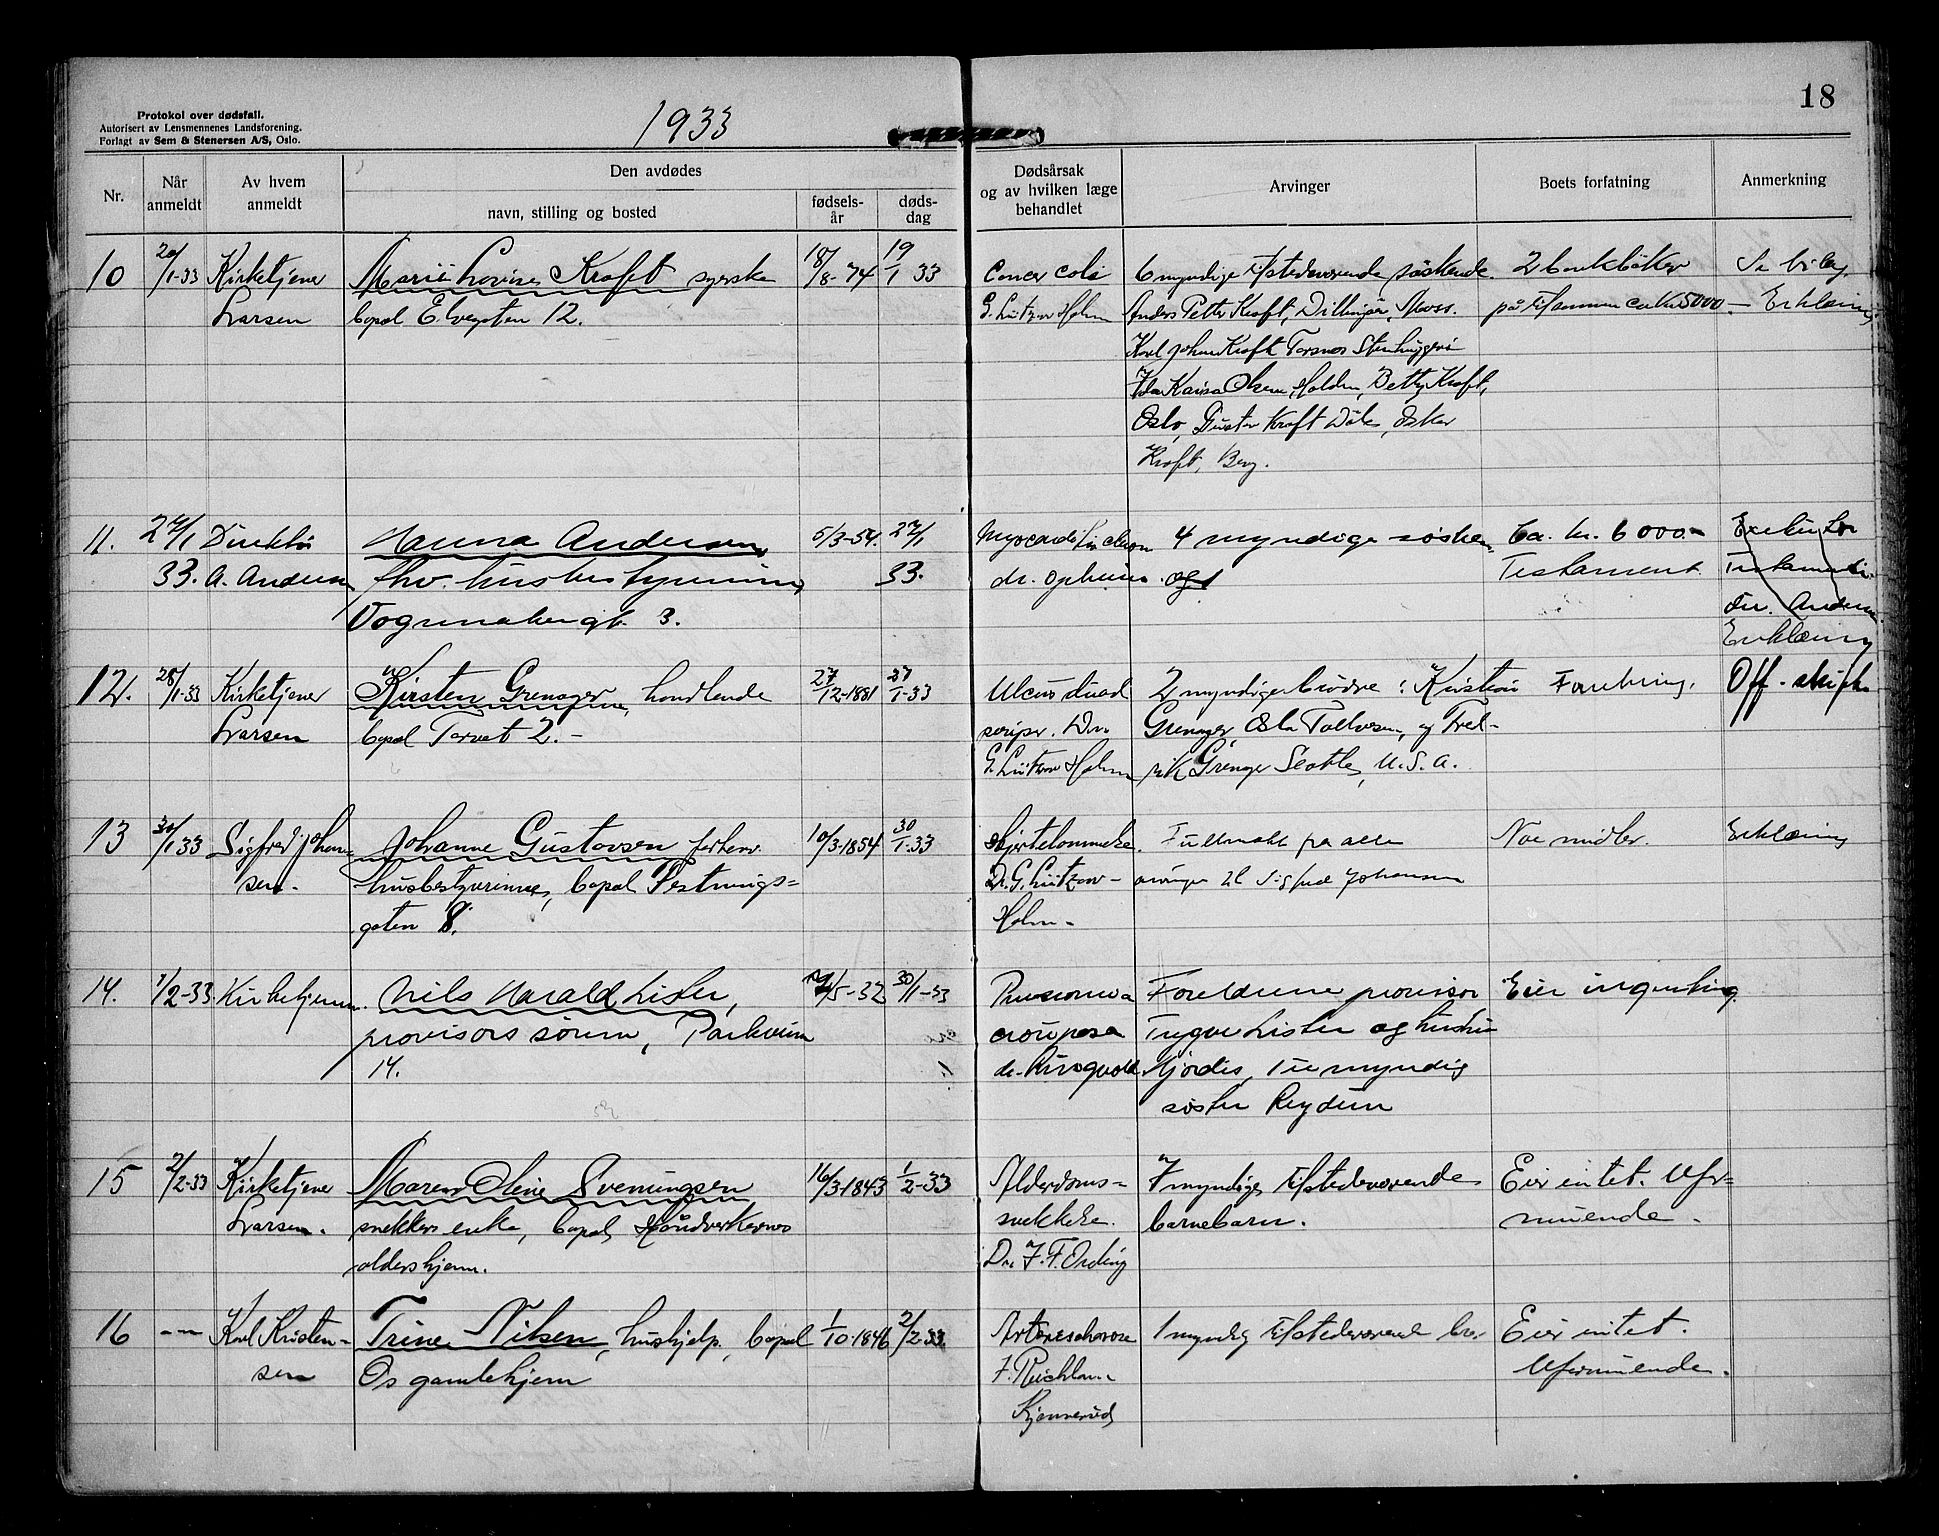 Protokol over dødsfall.
Autorisert av Lensmennenes Landsforening.
Forlagt av Sem & Stenersen A/S, Oslo.
1933
18
Nr.
Når anmeldt
Av hvem anmeldt
Den avdødes
navn, stilling og bosted
fødselsår
dødsdag
Dødsårsak
og av hvilken læge
behandlet
Arvinger
Boets forfatning
Anmerkning
10
20/1-33
Kirketjener
Larsen
Marie Lovise Kraft syerske
bopal Elvegaten 12.
18/8-74
19/1 33
Cancer coli
G. Lützow Holm
6 myndige tilstedeværende søskende
Anders Petter Kraft, Dillingø, Moss.
Karl Johan Kraft Torsnes Stenhuggeri
Ida Kaisa Olsen, Halden, Betty Kraft,
Oslo, Gustav Kraft, Oskar
Kraft, Berg.
2 bankbøker
på tilsammen ca kr 5000.-
Erklæring
11.
27/1 33.
Direktør
A. Andersen
Hanna Andersen
fhv. husbestyrerinne
Vognmakergt. 3.
5/3-54.
27/1 33.
dr.
4 myndige søsken
og 1
Ca. kr. 6000.-
Testament.
Testament
Andersen
Erklæring
12.
28/1-33
Kirketjener
Larsen
Kirsten Grenager, handlende
bopal Torvet 2.-
27/12-1881
27/1-33
Ulcus duad
Dr.
G. Lützow Holm
2 myndige brødre: Kristian
Grenager Oslo, og Fred-
rik Grenager Seatle, U.S.A.
Forretning.
Off. skifte
13
30/1 33
Sigfred Johan-
sen.
Johanne Gustavsen forhenv.
husbestyrerinne, bopal Festnings-
gaten 8.
10/3-1854
30/1-33
Hjertelammelse.
Dr. G. Lützow-
Holm-
Fullmakt fra alle
arvinger til Sigfred Johansen
Noe midler.
Erklæring
14.
1/2-33
Kirketjeneren.
Nils Harald Lister,
provisors sønn, Parkveien
14.
/5-32
30/1-33
Pneumonia
crouposa
dr. Ringvold
Foreldrene provisor
Trygve Lister og hustru
Hjørdis, umyndig
søster Reydun
Eier ingenting
15
2/2-33
Kirketjener
Larsen.
Maren Oline Svenningsen
snekkers enke, bopal Håndverkernes
aldershjem.
16/3-1843
1/2-33
Alderdoms-
svekkelse.
Dr. J. F. Ording
7 myndige tilstedeværende
barnebarn.
Eier intet. Ufor-
muende.
16
-"-
Karl Kristen-
sen
Trine Nilsen, hushjelp, bopal
Os gamlehjem
1/10-1846
2/2-33
Arteriesclerose
J. Reichborn
Kjennerud
1 myndig tilstedeværende bror
Eier intet.
Uformuende.